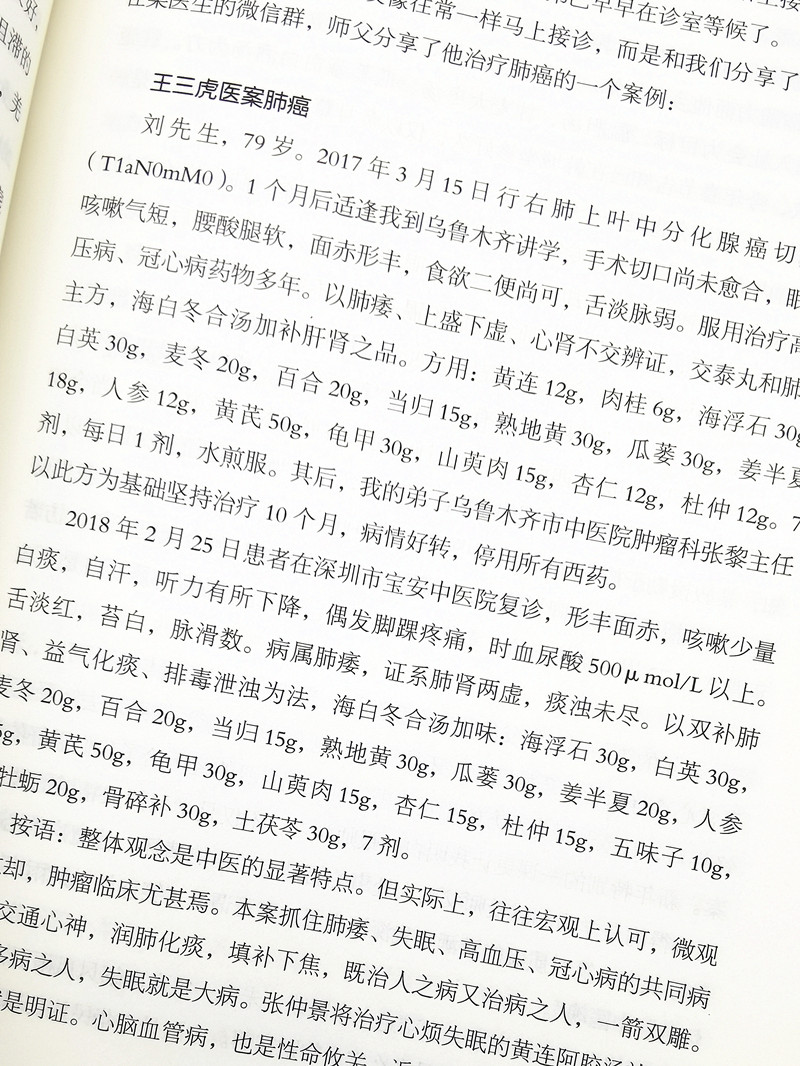 在某医生的微信群，师父分享了他治疗肺癌的一个案例：
像往常一样马上接诊，而是和我们分享了
早早在诊室等候了。
王三虎医案肺癌
刘先生，79岁。2017年3月15日行右肺上叶中分化腺癌切
（T1aN0mM0）。1个月后适逢我到乌鲁木齐讲学，手术切口尚未愈合，眠
咳嗽气短，腰酸腿软，面赤形丰，食欲二便尚可，舌淡脉弱。服用治疗高
压病、冠心病药物多年。以肺痿、上盛下虚、心肾不交辨证，交泰丸和肺
主方，海白冬合汤加补肝肾之品。方用：黄连12g，肉桂6g，海浮石30g
白英30g，麦冬20g，百合20g，当归15g，熟地黄30g，瓜蒌30g，姜半夏
18g，人参12g，黄芪50g，龟甲30g，山萸肉15g，杏仁12g，杜仲12g。7
剂，每日1剂，水煎服。其后，我的弟子乌鲁木齐市中医院肿瘤科张黎主任
以此方为基础坚持治疗10个月，病情好转，停用所有西药。
2018年2月25日患者在深圳市宝安中医院复诊，形丰面赤，咳嗽少量
白痰，自汗，听力有所下降，偶发脚踝疼痛，时血尿酸500μmol/L以上。
舌淡红，苔白，脉滑数。病属肺痿，证系肺肾两虚，痰浊未尽。以双补肺
肾、益气化痰、排毒泄浊为法，海白冬合汤加味：海浮石30g，白英30g，
麦冬20g，百合20g，当归15g，熟地黄30g，瓜蒌30g，姜半夏20g，人参
g，黄芪50g，龟甲30g，山萸肉15g，杏仁15g，杜仲15g，五味子10g，
牡蛎20g，骨碎补30g，土茯苓30g，7剂。
按语：整体观念是中医的显著特点。但实际上，往往宏观上认可，微观
却，肿瘤临床尤甚焉。本案抓住肺痿、失眠、高血压、冠心病的共同病
交通心神，润肺化痰，填补下焦，既治人之病又治病之人，一箭双雕。
多病之人，失眠就是大病。张仲景将治疗心烦失眠的黄连阿胶汤
是明证。心脑血管病，也是性命攸关